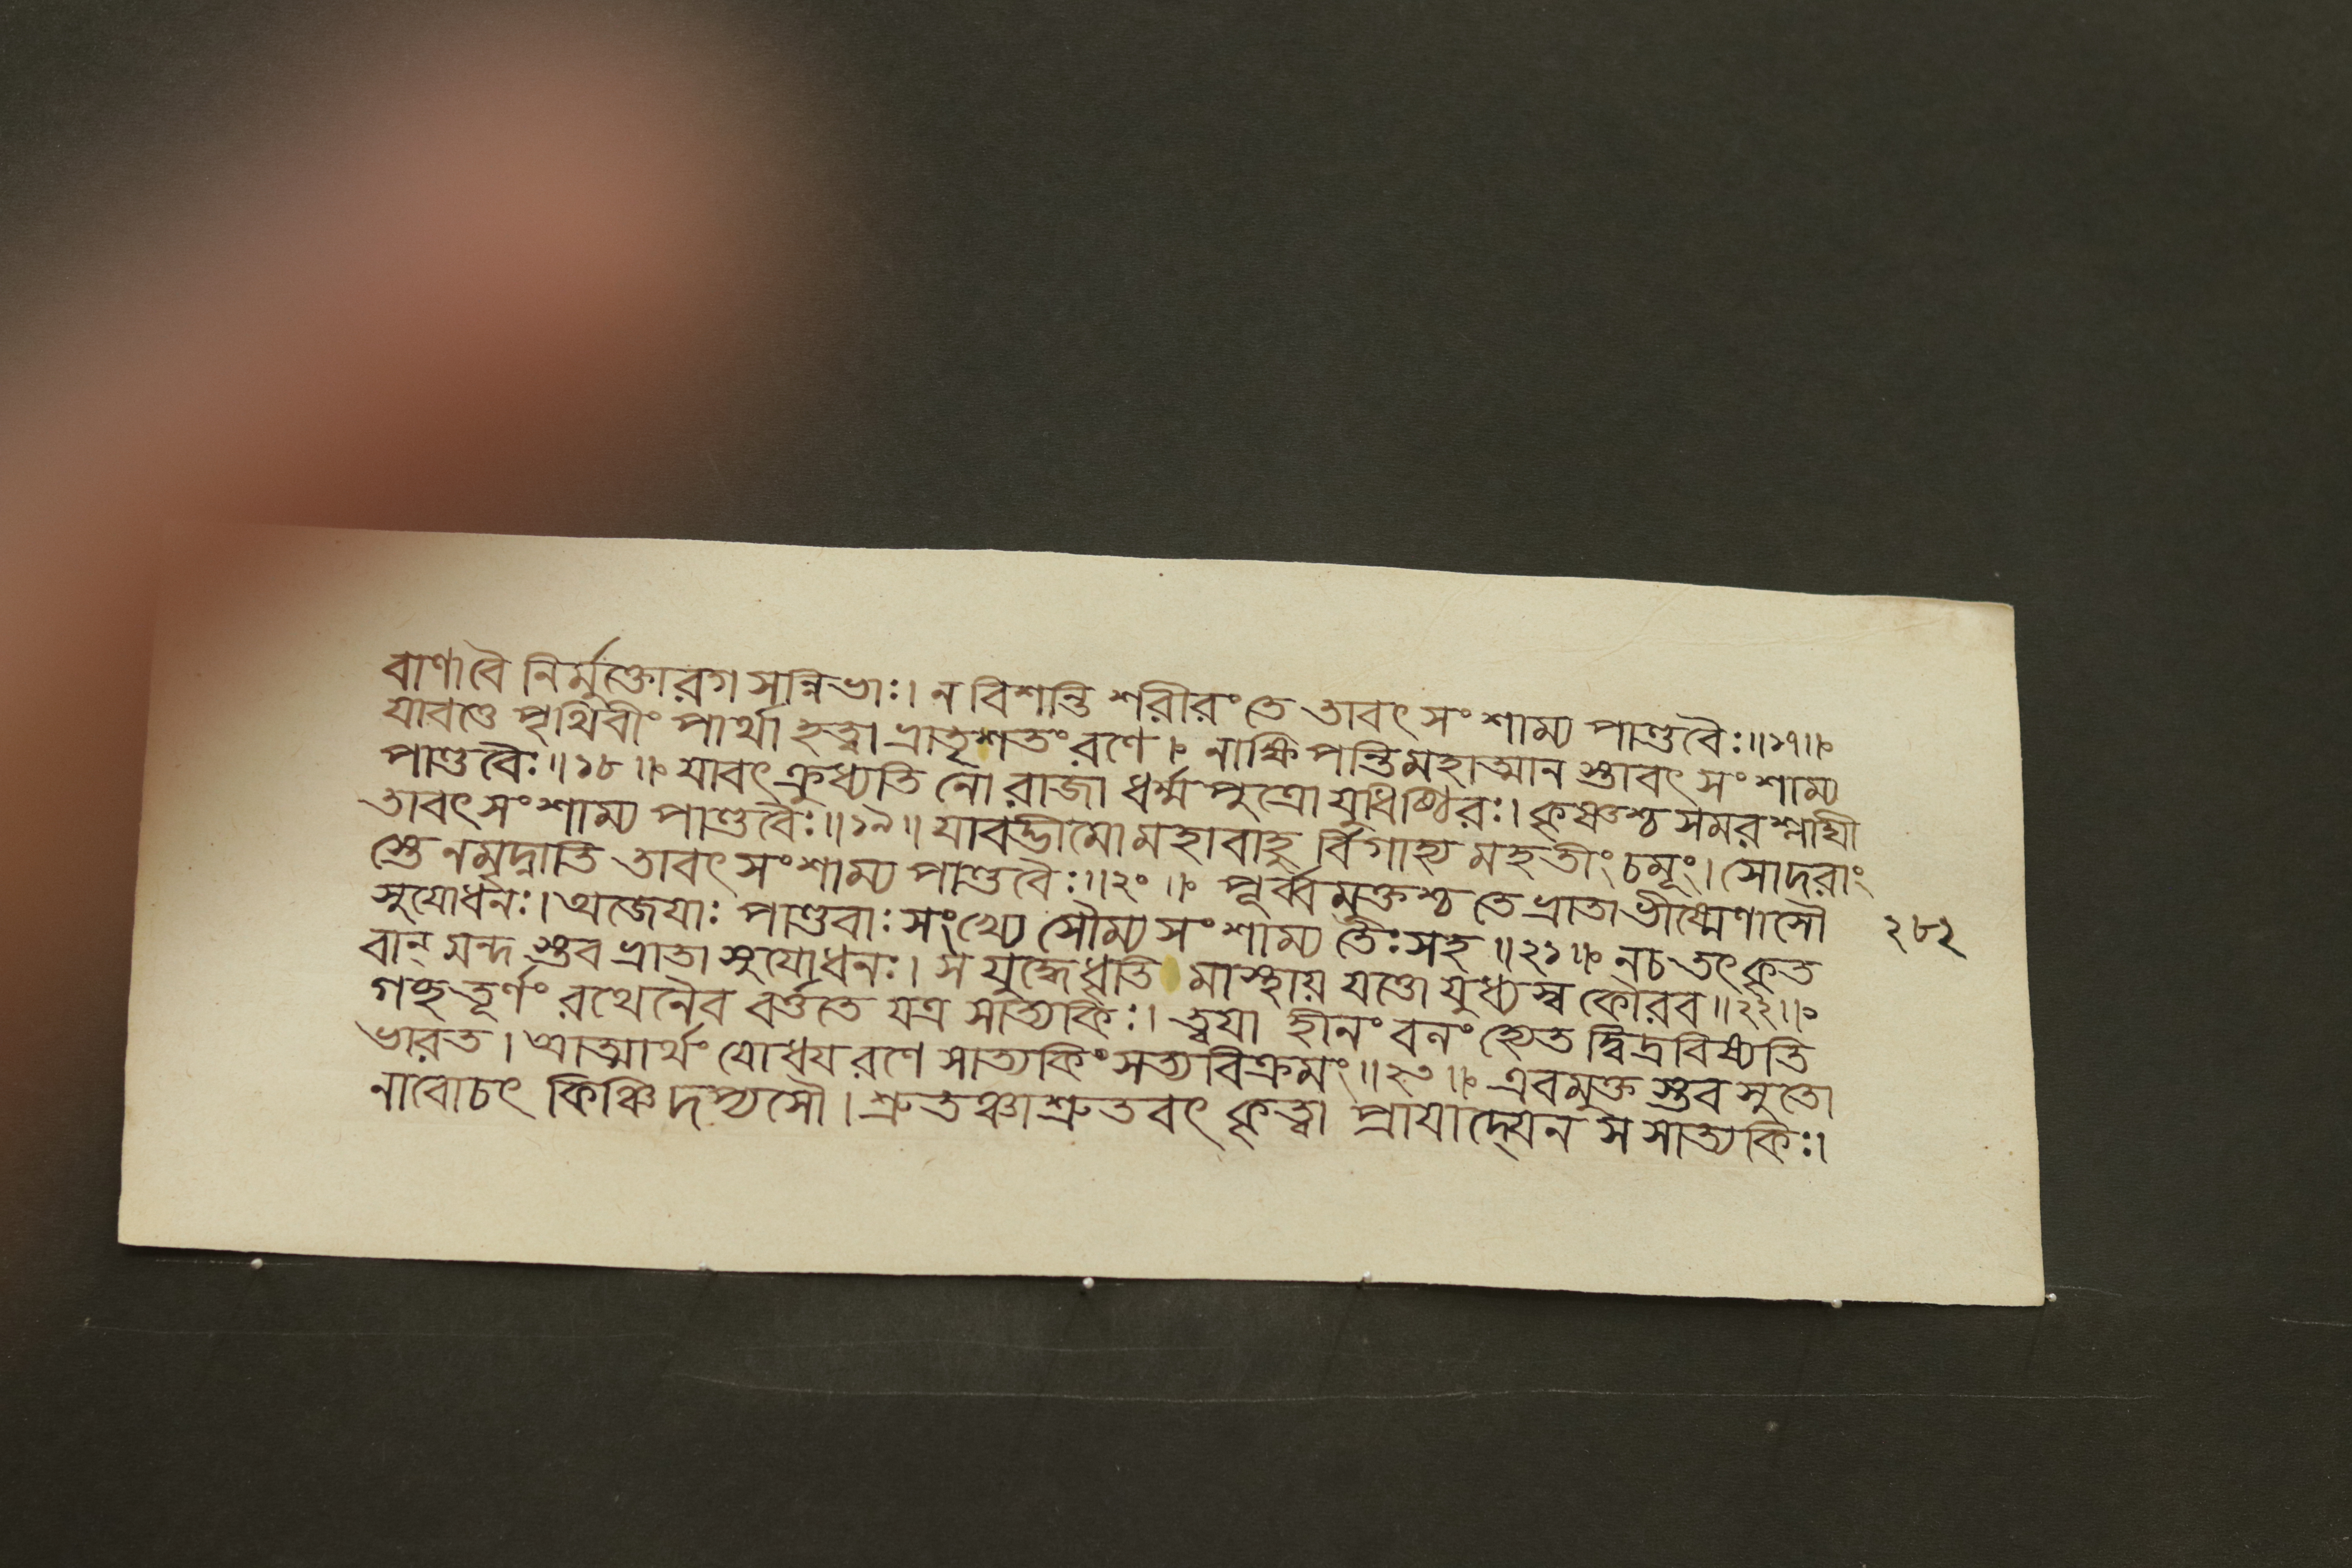 বাণাবৈ নির্মুক্তোরগ সন্নিভাঃ। ন বিশন্তি শরীরং তে তাবৎ সংশাম্য পাণ্ডবৈঃ॥১৭॥
যাবত্তে পৃথিবীং পার্থা হত্বা ভ্রাতৃশতং রণে। নাক্ষিপন্তি মহাত্মান স্তাবৎ সংশাম্য
পাণ্ডবৈঃ॥১৮॥ যাবৎ ক্রুধ্যতি নো রাজা ধর্ম্মপুত্রো যুধিষ্ঠিরঃ। কৃষ্ণশ্চ সমরশ্লাঘী
তাবৎ সংশাম্য পাণ্ডবৈঃ॥১৯॥ যাবদ্ভীমো মহাবাহু র্বিগাহ্য মহতীং চমূং। সোদরাং
স্তে নমৃদ্নাতি তাবৎ সংশাম্য পাণ্ডবৈঃ॥২০॥ পূর্ব্বমুক্তশ্চ তে ভ্রাতা ভীষ্মেণাসৌ
সুযোধনঃ। অজেযাঃ পাণ্ডবাঃ সংখ্যে সৌম্য সংশাম্য তৈঃ সহ॥২১॥ নচ তৎ কৃত
বান্ মন্দ স্তব ভ্রাতা সুযোধনঃ। স যুদ্ধে ধৃতি মাস্থায় যত্তো যুধ্যস্ব কৌরব॥২২॥
গচ্ছ তূর্ণং রথেনৈব বর্ত্ততে যত্র সাত্যকিঃ। ত্বযা হীনং বনং হ্যেত দ্বিদ্রবিষ্যতি
ভারত। আত্মার্থং যোধয রণে সাত্যকিং সত্যবিক্রমং॥২৩॥ এবমুক্ত স্তব সুতো
নাবোচৎ কিঞ্চিদপ্যসৌ। শ্রুতঞ্চাশ্রুতবৎ কৃত্বা প্রাযাদ্যেন স সাত্যকিঃ।
২৮২